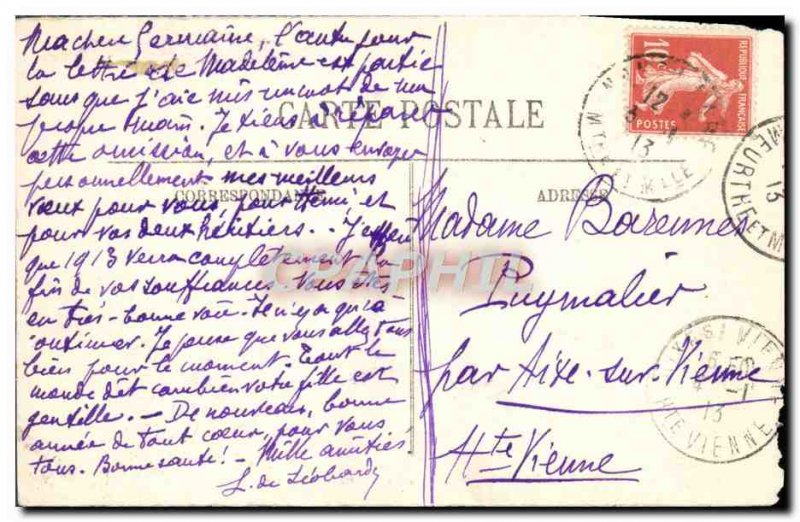 Ma chère Germaine, l'autre jour
la lettre de Madeleine est partie
sans que j'aie mis un mot de ma
propre main. Je tiens à réparer
cette omission, et à vous envoyer
personnellement mes meilleurs
vœux pour vous, pour Henri et
pour vos deux héritiers. J'espère
que 1913 verra complètement la
fin de vos souffrances. Vous êtes
en très-bonne voie. Je n'ai qu'à
continuer. Je pense que vous allez tous
bien pour le moment. Tout le
monde dit combien votre fille est
gentille. — De nouveau, bonne
année de tout cœur, pour vous
tous. Bonne santé! — Mille amitiés
L. de Léobardy
CARTE POSTALE
CORRESPONDANCE
ADRESSE
Madame Barennes
Puymalier
par Aixe-sur-Vienne
Hte Vienne
10
REPUBLIQUE FRANCAISE
POSTES
12
13
MTHE ET MLLE
MEURTHE ET M
13
VIENNE
13
HTE VIENNE
CPAPHIL